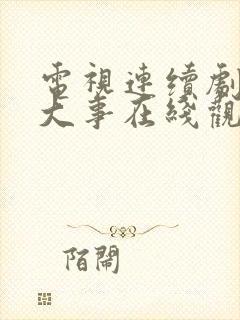 電視連續劇
大事在綫觀
陌鬧